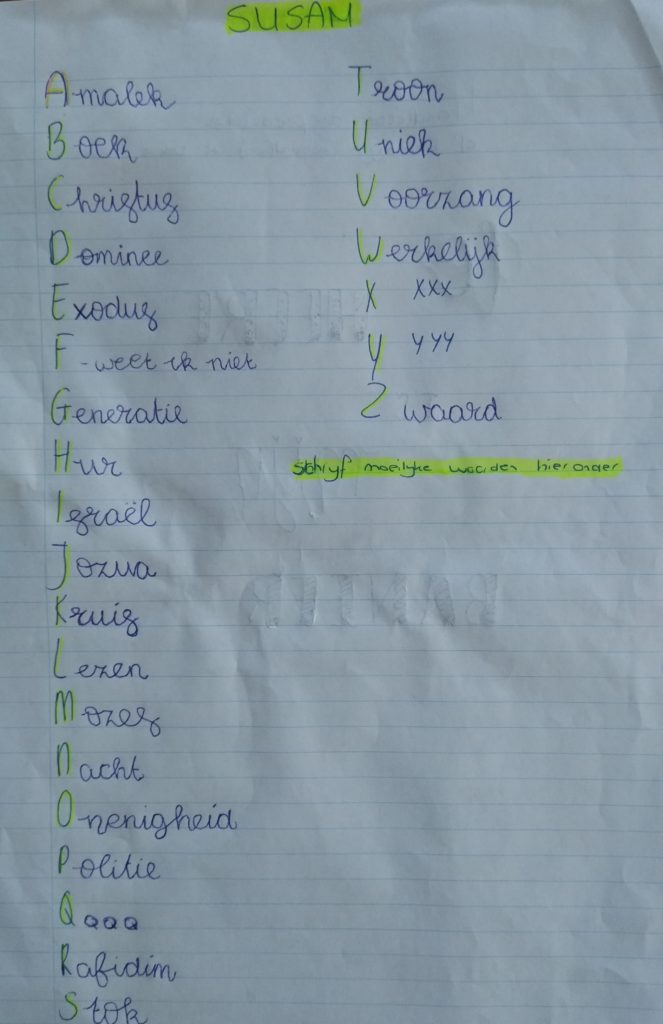 SUSAM
Amalek
Boek
Christus
Dominee
Exodus
F - weet ik niet
Generatie
Hur
Israël
Jozua
Kruis
Lezen
Mozes
Nacht
Onenigheid
Politie
Qqqq
Rafidim
Stok
Troon
Uniek
Voorzang
Werkelijk
X xxx
y yyy
Z waard
Schrijf moeilijke woorden hieronder